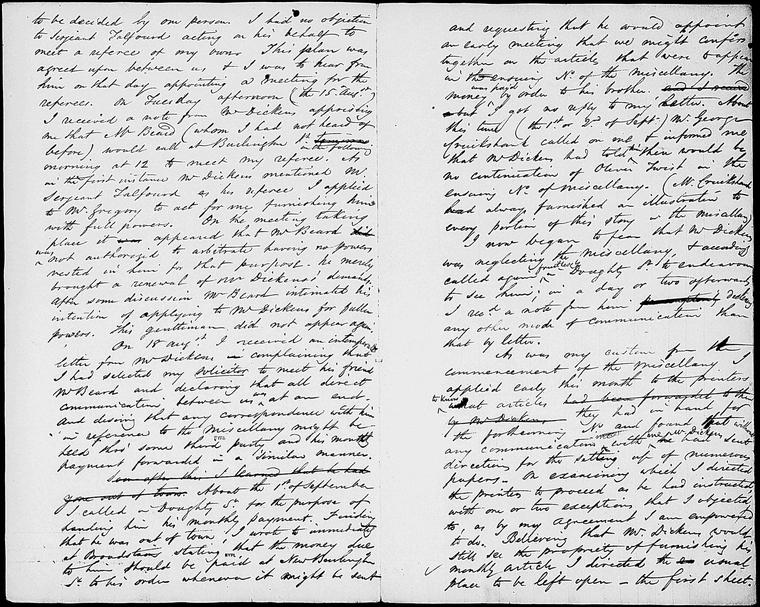 to be decided by one person. I had no objection
to Sergeant Talfourd acting on his behalf to
meet a referee of my own. This plan was
agreed upon between us & I was to hear from
him on that day appointing a meeting for the
referees. On Tuesday afternoon (the 15 Augst)
I received a note from Mr Dickens apprising
me that Mr Beard (whom I had not heard of
before) would call at Burlington St. in the following
morning at 12 to meet my referee. As
in the first instance Mr Dickens mentioned Mr.
Sergeant Talfourd as his referee I applied
to Mr Gregory to act for me furnishing him
with full powers. On the meeting taking
place it was appeared that Mr Beard did
was not authorized to arbitrate having no powers
vested in him for that purpose. He merely
brought a renewal of Mr Dickens' demands.
After some discussion Mr Beard intimated his
intention of applying to Mr Dickens for fuller
powers. This gentleman did not appear again.
On 18 Augst I received an intemperate
letter from Mr Dickens complaining that
I had selected my solicitor to meet his friend
Mr Beard and declaring that all direct
communication between us was at an end.
And desiring that any correspondence with him
in reference to the Miscellany might be
held thro' some third party and his month
payment forwarded in a similar manner.
Soon after this I learned that he had
gone out of town. About the 1st of September
I called in Doughty St. for the purpose of
handing him his monthly payment. Finding
that he was out of town, I wrote to immediately
at Broadstairs stating that the money due
to him should be paid at New Burlington
St. to his order whenever it might be sent
and requesting that he would appoint
an early meeting that we might confer
together on the articles that were to appear
in the ensuing No. of the Miscellany. The
money was paid by order to his brother. and I received
but I got no reply to my letter. About
this time (the 1st or 2d of Sept.) Mr. George
Cruikshank called on one & informed me
that Mr Dickens had told him there would be
no continuation of Oliver Twist in the
ensuing No. of Miscellany. (Mr. Cruikshank
had always furnished an illustration to
every portion of this story in the Miscellany)
I now began to fear that Mr Dickens
was neglecting the Miscellany & accordingly
called again fruitlessly Doughty St. to endeavour
to see him; in a day or two afterwards
I recd a note from him declining
any other mode of communication than
that by letter.
As was my custom from the
commencement of the Miscellany I
applied early this month to the printers
to know what articles had been forwarded to them
by Mr Dickens they had in hand for
the forthcoming No. and found that without
any communication with me Mr Dickens had sent
directions for the setting up of numerous
papers. On examining which I directed
the printer to proceed as he had instructed
with one or two exceptions that I objected
to, as by my agreement I am empowered
to do. Believing that Mr. Dickens would
still see the propriety of furnishing his
monthly article I directed the usual
place to be left open – the first sheet.